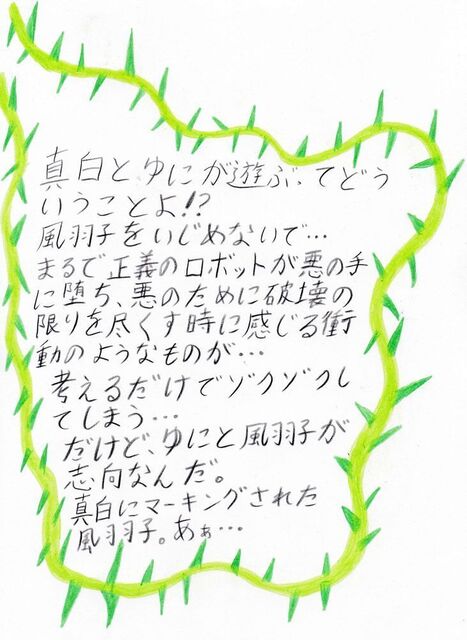 真白とゆにが遊ぶってどう
いうことよ!?
風羽子をいじめないで…
まるで正義のロボットが悪の手
に堕ち、悪のために破壊の
限りを尽くす時に感じる衝
動のようなものが…
考えるだけでゾクゾクし
てしまう…
だけど、ゆにと風羽子が
志向なんだ。
真白にマーキングされた
風羽子。あぁ…